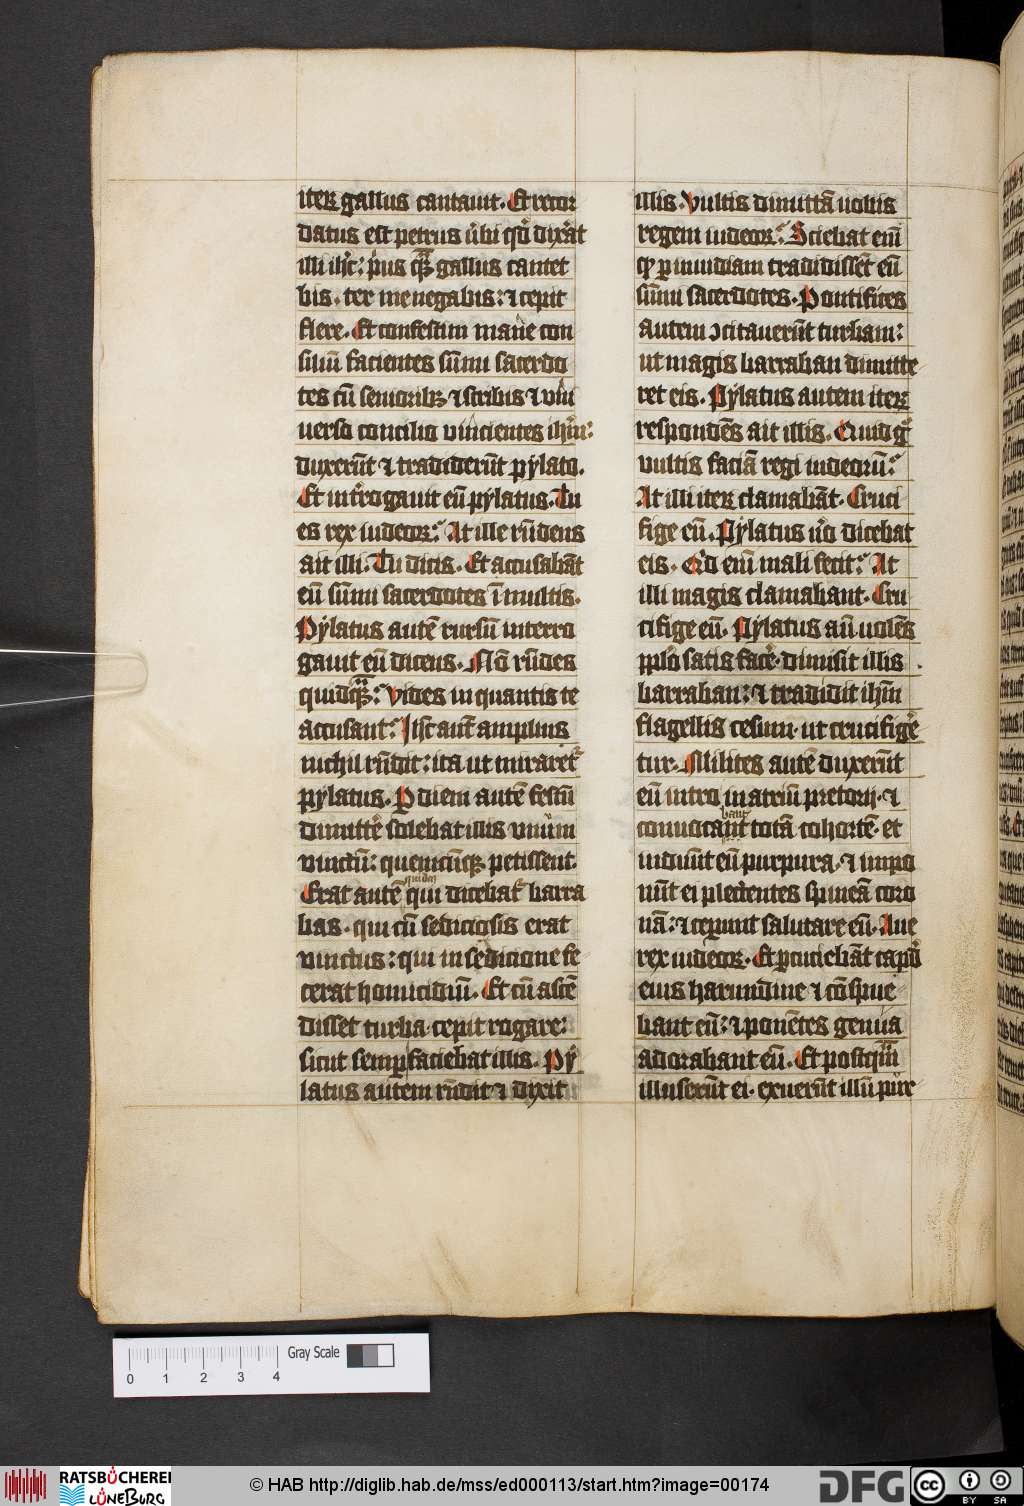 iterꝝ gallus cantauit. Et recor
datus est petrus ubi qd dixat
illi ihc: pus qꝫ gallus cantet
bis. ter me negabis: ⁊ cepit
flere. Et confestim mane con
siliū facientes sūmi sacerdo
tes cū seniorib; ⁊ scribis ⁊ vni
uerso concilio vincientes ihm:
duxerūt ⁊ tradiderūt pylato.
Et introgauit eū pylatus. Tu
es rex iudeoꝝ: At ille rn̄dens
ait illi: Tu dicis. Et accusabāt
eū sūmi sacerdotes ī multis.
Pylatus autē rursū interro
gauit eū dicens. Nō rn̄des
quidqꝫ: vides in quantis te
accusant: Ihc aut amplius
nichil rn̄dit: ita ut miraret
pylatus. P diem autē festū
dimitte solebat illis vnum
vinctū: quemcūqꝫ petissent.
Erat autē qui dicebat barra
bas. qui cū sediciosis erat
vinctus: qui in sedicione fe
cerat homicidiū. Et cū ascē
disset turba. cepit rogare:
sicut semp faciebat illis. Py
latus autem rn̄dit ⁊ dixit
illis. vultis dimittā uobis
regem iudeoꝝ: Sciebat em̄
ꝙ p inuidiam tradidissēt eū
sūmi sacerdotes. Pontifices
autem ↄcitauerūt turbam:
ut magis barraban dimitte
ret eis. Pylatus autem iterꝝ
respondēs ait illis. Quid g
vultis faciā regi iudeorū:
At illi iterꝝ clamabāt. Cruci
fige eū. Pylatus uo dicebat
eis. Qd em̄ mali fecit: At
illi magis clamabant. Cru
cifige eū. Pylatus aū uolēs
pplo satis face. dimisit illis
barraban: ⁊ tradidit ihm
flagellis cesum. ut crucifige
tur. Milites autē duxerūt
eū intro in atriū pretorij. ⁊
conuocant totā cohortē. et
induūt eū purpura. ⁊ impo
nūt ei plectentes spineā coro
nā: ⁊ ceperunt salutare eū. Aue
rex iudeoꝝ. Et pcuciebāt capd
eius harundine ⁊ cōspue
bant eū: ⁊ ponētes genua
adorabant eū. Et postqm
illuserūt ei. exuerūt illū pur
0 1 2 3 4 Gray Scale
RATSBÜCHEREI LÜNEBURG
© HAB http://diglib.hab.de/mss/ed000113/start.htm?image=00174
DFG
cc BY SA